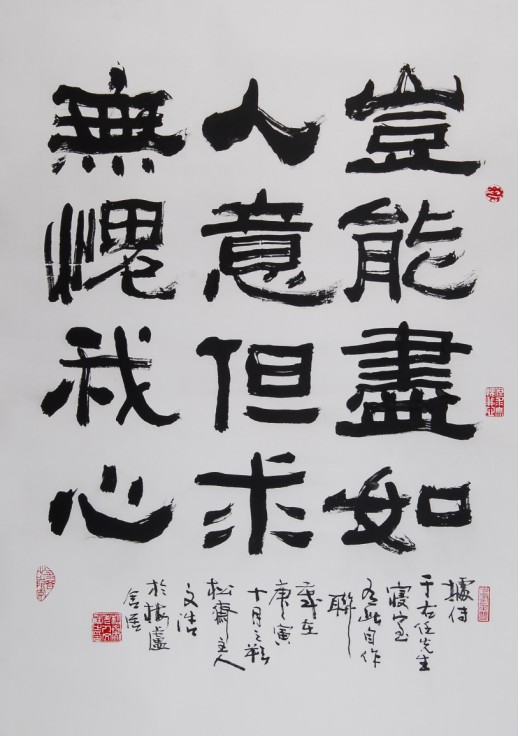 豈能盡如
人意但求
無愧我心
據傳
于右任先生
寢室
有此自作
聯
歲在
庚寅
十月之秋
松齋主人
文浩
於樓盧